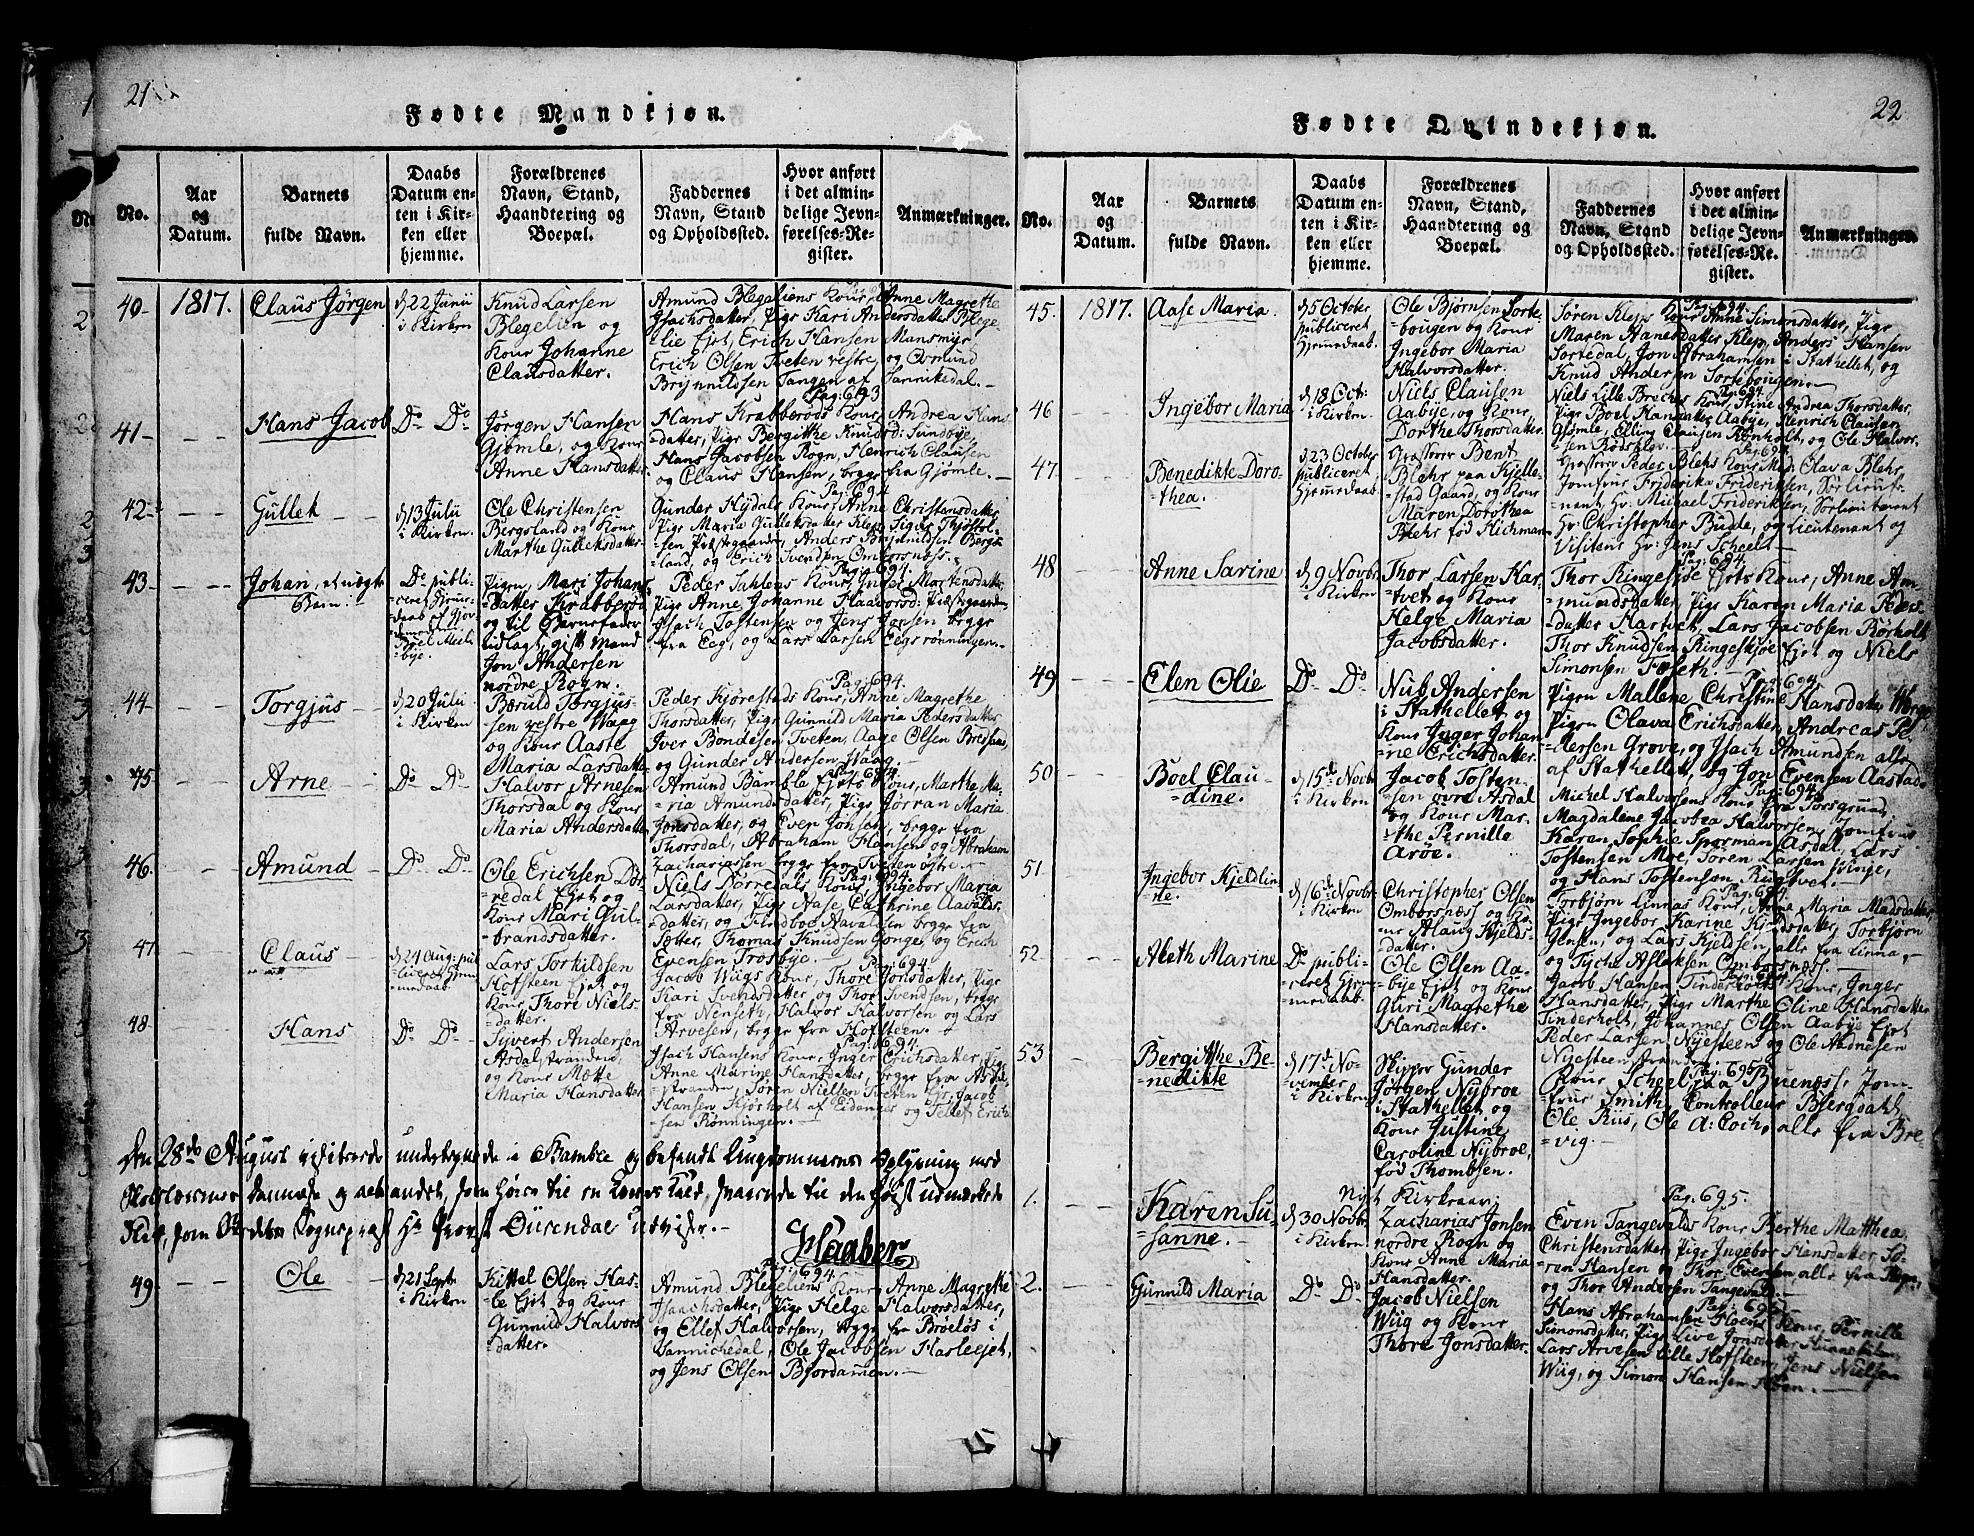 21
Fødte Mandkjøn.
No.
Aar og Datum.
Barnets fulde Navn.
Daabs Datum enten i Kirken eller hjemme.
Forældrenes Navn, Stand, Haandtering og Boepæl.
Faddernes Navn, Stand og Opholdssted.
Hvor anført i det almindelige Jevnførelses-Register.
Anmærkninger.
40. 1817. Claus Jörgen
d 22 Junii
i Kirken
Knud Larsen
Blegelien og
Kone Johanne
Clausdatter.
Amund Blegeliens Kone, Anne Magrethe
Isachsdatter, Pige Kari Andersdatter Blege
lie Ejet, Erich Hansen Mansmyr
Erich Olsen Tveten vestre, og Osmund
Brynnildsen Tangen af Sannikedal.
Pag: 693
41 Hans Jacob
Do Do
Jörgen Hansen
Gjömle, og Kone
Anne Hansdatter
Hans Krabberöds Kone, Andrea Hans
datter, Pige Bergitthe Knudsd: Sundbye,
Hans Jacobsen Rogn, Henrich Clausen
og Claus Hansen, begge fra Gjömle.
Pag: 694
42 Gullek
d 13 Julii
i Kirken
Ole Christensen
Bergsland og Kone
Marthe Gulleksdatter
Gunder Hydals Kone, Anne Christensdatter
Pige Maria Gulleksdatter Klep, Sigur Thjostol-
=sen Præstegaarden, Anders Brynnildsen Bergs
=land, og Erich Svendsen Ombørsnæss.
Pag: 694
43 Johan, et uægte
Barn.
Do publi-
=ceret Hjemme-
daab
Pigen Mari Johans
=datter Krabberöd
og til Barnefader
udlagt, gift Mand
Jon Andersen
nordre Rogn.
Peder Sahlens Kone, Inger Mortensdatter
Pige Anne Johanne Haavorsd: Præstegaarden
Isach Tostensen og Jens Jonsen begge
fra Eeg, og Lars Larsen Eegsrönningen.
Pag: 694
44 Torgjus
d 20 Julii
i Kirken
Bæruld Torgjus-
sen vestre Waag
og Kone Aaste
Maria Larsdatter
Peder Kjörestads Kone, Anne Magrethe
Thorsdatter, Pige Gunnild Maria Pedersdatter
Iver Bondesen Tveten, Aage Olsen
og Gunder Andersen Waag.
Pag: 694
45 Arne
Do Do
Halvor Arnesen
Thorsdal og Kone
Maria Andersdatter
Amund Bamble Ejets Kone, Marthe Ma-
=ria Amundsdatter, Pige Jörran Maria
Jonsdatter, og Even Jonsen, begge fra
Thorsdal, Abraham Hansen og Abraham
Zachariassen begge fra Tveten östre.
Pag: 694
46. Amund
Do Do
Ole Erichsen Dör
=redal Ejet og
Kone Mari Gul-
brandsdatter.
Niels Dörredals Kone, Ingebor Maria
Larsdatter, Pige Aase Cathrine Aavalds-
datter, og Findboe Aavaldsen begge fra
Tetter, Thomas Knudsen Gonge, og Erich
Evensen Trosbye.
Pag: 694
47 Claus
d 24 Aug: pub
liceret Hjem
=medaab
Lars Torkildsen
Hofsteen Ejet og
Kone Thore Niels-
=datter.
Jacob Wiigs Kone, Thore Jonsdatter, Pige
Kari Svendsdatter, og Thor Svendsen, begge
fra Nenseth, Halvor Halvorsen og Lars
Arvesen, begge fra Hofsteen.
Pag: 694
48 Hans
Do Do
Syvert Andersen
Asdalstranden,
og Kone Mette
Maria Hansdatter
Isach Hansens Kone, Inger Erichsdatter, Pige
Anne Marine Hansdatter, begge fra Asdal
=stranden, Sören Nielsen Tveten Ejet, Jacob
Hansen Kjörholt af Eidanes og Tellef Erich
=sen Rönningen.
Den 28de August visiterede undertegnede i Bamble og befandt Ungdommens Oplysning med
Skolelærernes Dannelse og at andet, som hörer til en Kones Kald, svarende til den höist udmærkede
Flid, som Stedets Sognepræst Hr Provst Dürendal udviser.
Flaaber
49. Ole
d 21 Sept:
i Kirken
Kittel Olsen Has-
=le Ejet og Kone
Gunnild Halvors
datter.
Pag: 694
Amund Blegeliens Kone, Anne Magrethe
Isachsdatter, Pige Helge Halvorsdatter,
og Ellef Halvorsen, begge fra Bröelös i
Sannichedal, Ole Jacobsen Hasleejet,
og Jens Olsen Bjordammen.
22
Fødte Qvindekjøn.
No.
Aar og Datum.
Barnets fulde Navn.
Daabs Datum enten i Kirken eller hjemme.
Forældrenes Navn, Stand, Haandtering og Boepæl.
Faddernes Navn, Stand og Opholdssted.
Hvor anført i det almindelige Jevnførelses-Register.
Anmærkninger.
45. 1817. Aase Maria.
d 5 October
publiceret
Hjemmedaab.
Ole Björnsen Sorte-
bougen og Kone
Ingebor Maria
Halvorsdatter.
Pag: 694.
Sören Kleps Kone Anne Simonsdatter, Pige
Maren Hansdatter Klep, Anders Hansen
Sortedal, Jon Abrahamsen i Stathellet, og
Knud Andersen Sortebougen.
46 Ingebor Maria
d 18 Oct:
i Kirken
Niels Clausen
Aabye, og Kone
Dorthe Thorsdatter.
Pag: 694
Niels Lille Brækes Kone Stine Andrea Thorsdatter,
Pige Boel Hansdatter Aabye, Henrich Clausen
Gjömle, Elling Clausen Rönholt, og Ole Halvor
sen Rödsklev.
47 Benedikte Doro-
=thea.
d 23 October
publiceret
Hjemmedaab
Bent
Blehr paa Kjelle-
stad Gaard, og Kone
Maren Dorothea
Blehr fød Hichmann
Pag: 694
Peder Blehrs Kone Mad: Olava Blehr,
Jomfrue Friderika Frideriksen, Sørlieut-
nant Hr. Michael Frideriksen, Sorlieutenant
Hr. Christopher Budde, og Lieutenant og
Visiteur Hr. Jens Scheel.
48 Anne Sarine
d 9 Novbr
i Kirken
Thor Larsen Har
=tvet og Kone
Helge Maria
Jacobsdatter.
Pag: 694
Thor Ringesjöe Ejets Kone, Anne Am
=mundsdatter, Pige Karen Maria Peders
=datter Hartvet, Lars Jacobsen Rörholt
Thor Knudsen Ringeskjöe Ejet og Niels
Simonsen Foseth.
49 Elen Olie
Do Do
Nub Andersen
i Stathellet og
Kone Inger Johan
=ne Erichsdatter.
Pag: 694
Pigen Mallene Christine Hansdatter
Pigen Olava Erichsdatter, Andreas Pe
=dersen Grove, og Isach Amundsen alle
af Stathellet, og Jon Evensen Aastad.
50 Boel Clau-
=dine.
d 15de Novbr
i Kirken
Jacob Tosten-
sen övre Asdal
og Kone Mar-
the Pernille
Aröe.
Pag: 694
Michel Halvorsens Kone fra Porsgrund,
Magdalene Jacobea Halvorsen, Jomfrue
Karen Sophie Sporman Asdal, Lars
Tostensen Moe, Sören Larsen Vinje,
og Hans Tostensen Rugtvet.
51 Ingebor Kjeldli
=ne.
d 16de Novbr
i Kirken
Christopher Olsen
Ombørsnæs og Ko
=ne Aslaug Kjelds-
datter.
Pag: 694
Torbjörn Linnas Kone, Anna Maria Madsdatter
Pige Ingebor Karine Kjeldsdatter, Torbjörn
Jensen, og Lars Kjeldsen, alle fra Linna,
og Tyche Aslaksen Ombørsnæs.
52 Aleth Marine
Do publi-
ceret Hjem
medaab.
Ole Olsen Aa-
bye Ejet og Kone
Guri Magrethe
Hansdatter.
Pag: 694
Jacob Hansen Tinderholts Kone, Inger
Hansdatter, Pige Marthe Eline Hansdatter
Tinderholt, Johannes Olsen Aabye Ejet
Peder Larsen Nyesteen og Ole Aadnesen
Nyesteen stranden.
53 Bergitthe Be-
=nedikte
d 17de No-
vember
i Kirken
Skipper Gunder
Jörgen Nybroe
i Stathellet og
Kone Justine
Caroline Nybroe,
fød Thombsen.
Pag: 695
Kone Scheel paa Buenæss, Jom-
frue Smith, Controlleur Bjergdahl
Ole Riis, Ole A: Coch, alle fra Bre
=vig.
Nyt Kirkeaar:
1. Karen Su-
=sanne.
d 30 Novbr
i Kirken
Zacharias Jonsen
nordre Rogn og
Kone Anne Maria
Hansdatter.
Pag: 695.
Even Tangevalds Kone Berthe Matthea
Christensdatter, Pige Ingebor Hansdatter, Sö-
ren Hansen og Thor Evensen alle fra Rogn,
og Thor Andersen Tangevald.
2. Gunnild Maria
Do Do
Jacob Nielsen
Wiig og Kone
Thore Jonsdatter.
Pag: 695
Hans Abrahamsen Hoens Kone, Pernille
Simonsdatter, Pige Live Jonsdatter
Lars Arvesen lille Hofsteen, Jens Nielsen
Wiig, og Simon Hansen Hoen.